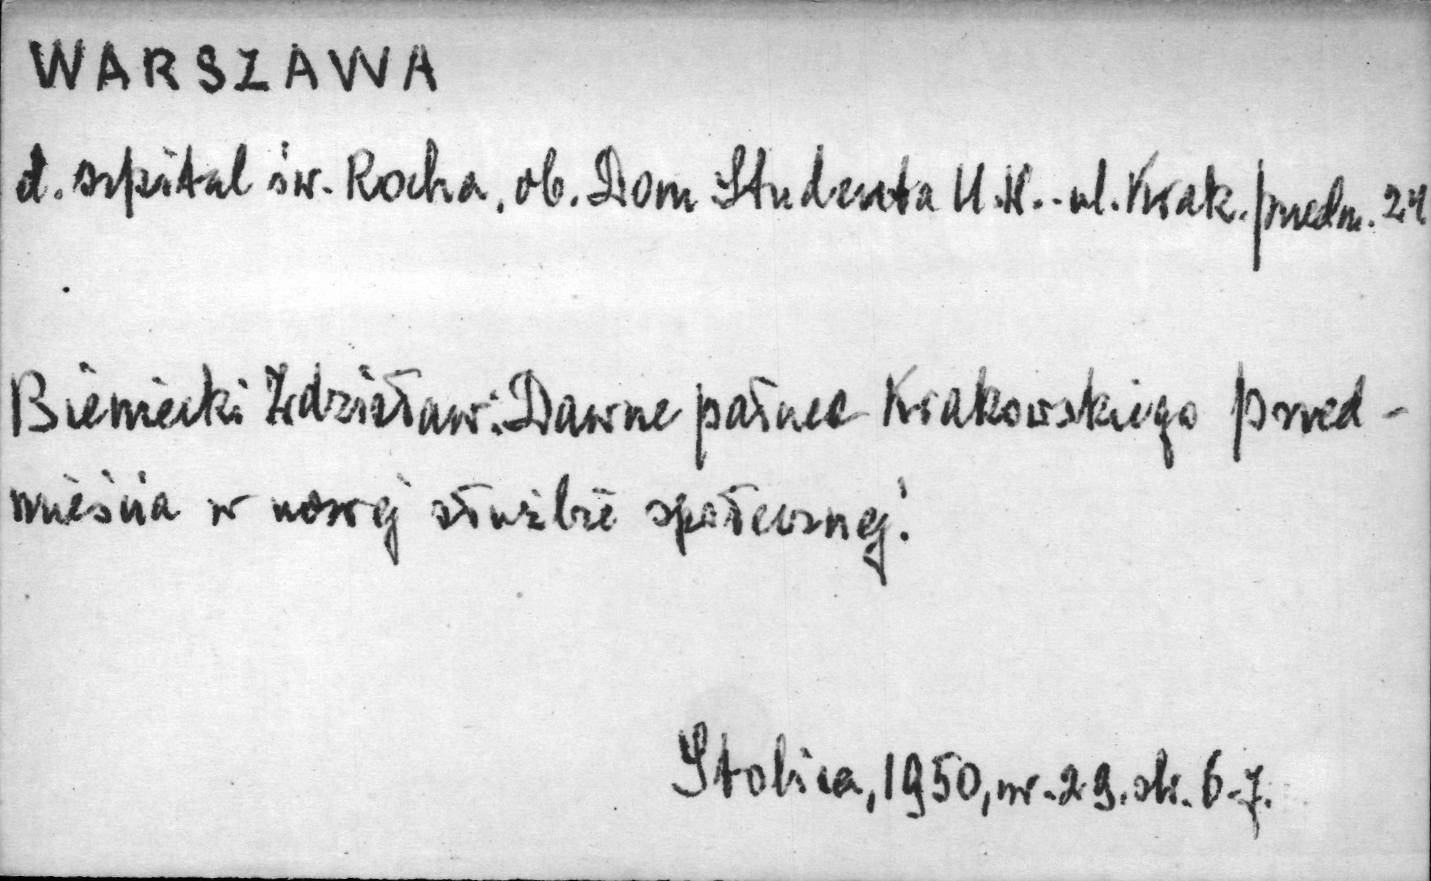 WARSZAWA
d. szpital św. Rocha, ob. Dom Studenta U.W. - ul. Krak. przedm. 24
Bieniecki Zdzisław: Dawne pałace Krakowskiego przed-
mieścia w nowej służbie społecznej.
Stolica, 1950, nr. 29. str. 6-7.